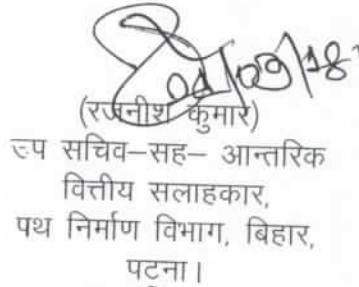 04/09/18
(रजनीश कुमार)
उप सचिव–सह– आन्तरिक
वित्तीय सलाहकार,
पथ निर्माण विभाग, बिहार,
पटना।